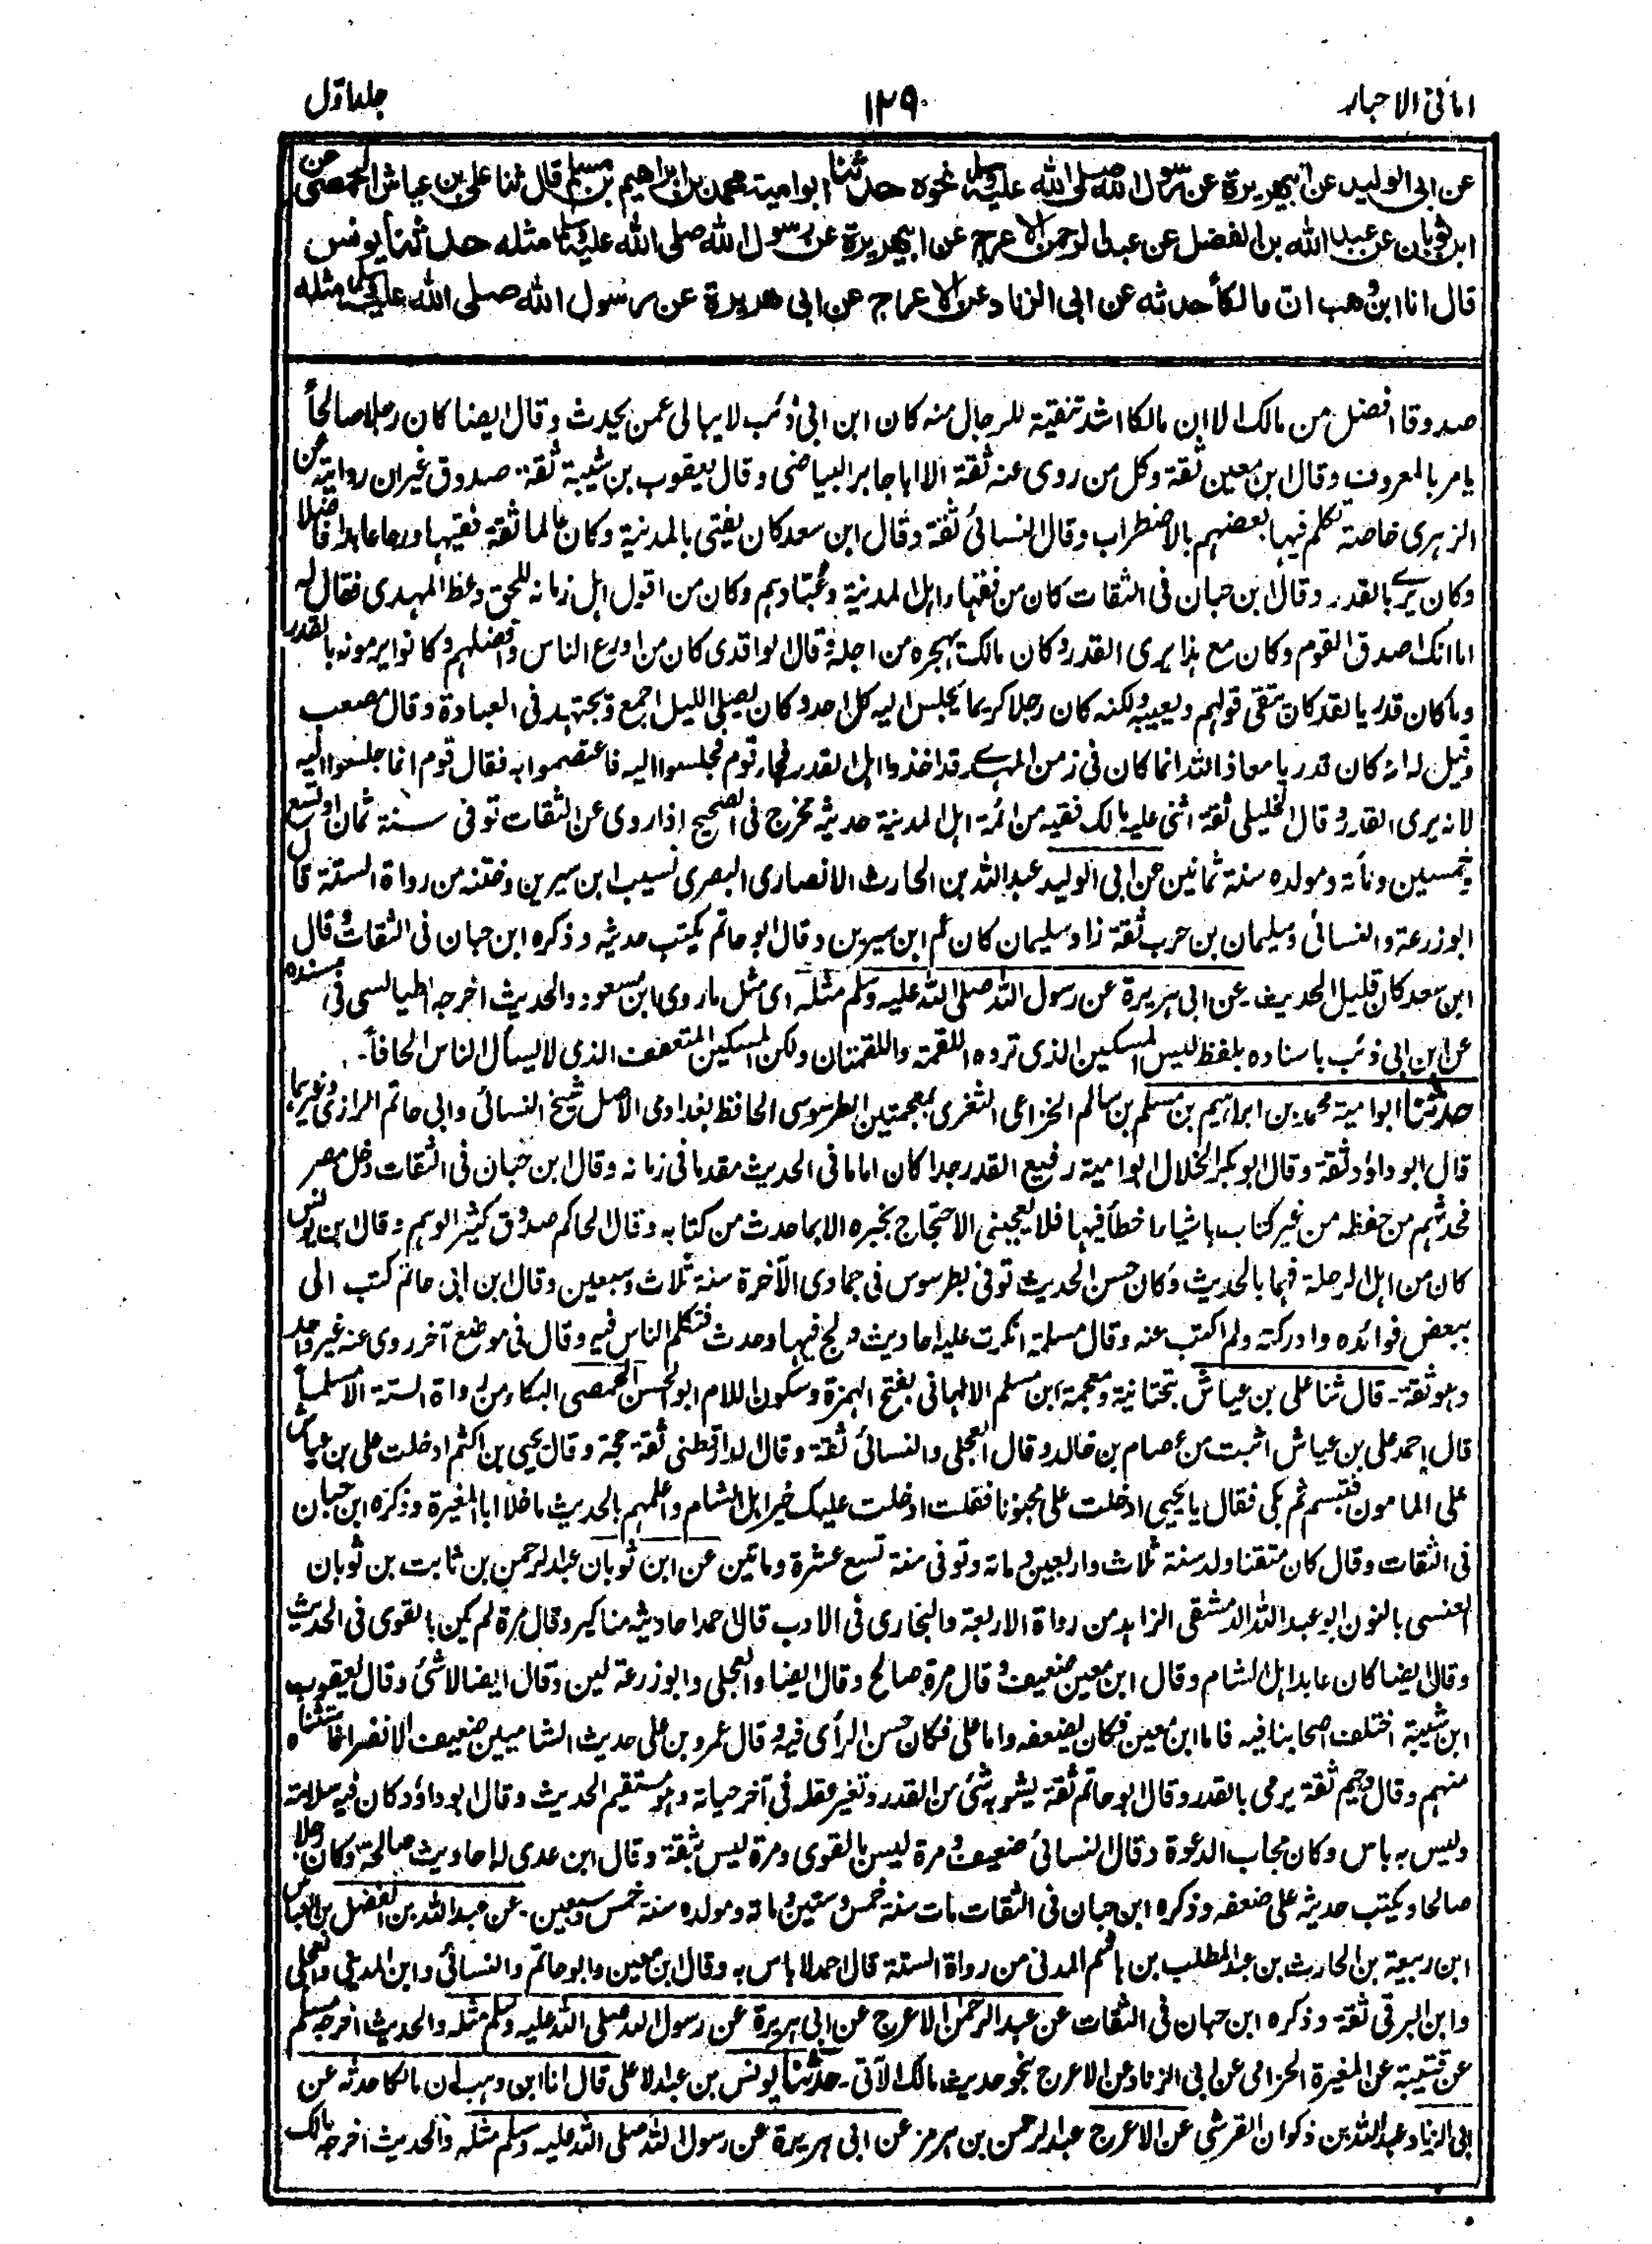 امانی الاحبار
۱۲۹
جلد اول
عن ابی الولید عن ابی هریرة عن رسول الله صلی الله علیه وسلم نحوه حدثنا ابوامیة محمد بن ابراهیم بن مسلم قال ثنا علی بن عیاش الحمصی عن
ابن ثوبان عن عبد الله بن الفضل عن عبد الرحمن الاعرج عن ابی هریرة عن رسول الله صلی الله علیه وسلم مثله حدثنا یونس
قال انا ابن وهب ان مالکاً حدثه عن ابی الزناد عن الاعرج عن ابی هریرة عن رسول الله صلی الله علیه وسلم مثله
صدوقا افضل من مالک الا ان مالکا اشد تنقیة للرجال منه کان ابن ابی ذئب لا یبالی عمن یحدث وقال ایضا کان رجلا صالحاً
یامر بالمعروف وقال ابن معین ثقة وکل من روی عنه ثقة الا ابا جابر البیاضی وقال یعقوب بن شیبة ثقة صدوق غیر ان روایته عن
الزهری خاصة تکلم فیها بعضهم بالاضطراب وقال النسائی ثقة وقال ابن سعد کان یفتی بالمدینة وکان عالما ثقة فقیها ورعا عابدا فاضلا
وکان یرے بالقدر وقال ابن حبان فی الثقات کان من فقهاء اهل المدینة وعُبّادهم وکان من اقول اهل زمانه للحق وعظ المهدی فقال له
اما انک اصدق القوم وکان مع هذا یری القدر وکان مالک یهجره من اجله وقال الواقدی کان من اورع الناس وافضلهم وکانوا یرمونه بالقدر
وما کان قدریا لقد کان یتقی قولهم ویعیبه ولکنه کان رجلا کریما یجلس الیه کل احد وکان یصلی اللیل اجمع ویجتهد فی العبادة وقال مصعب
وقیل له انه کان قدریا معاذ الله انما کان فی زمن المهدے قد اخذوا اهل القدر فجاء قوم فجلسوا الیه فاعتصموا به فقال قوم انما جلسوا الیه
لانه یری القدر وقال الخلیلی ثقة اثنی علیه مالک فقیه من ائمة اهل المدینة حدیثه مخرج فی الصحیح اذا روی عن الثقات توفی سنة ثمان او تسع
وخمسین ومائة ومولده سنة ثمانین عن ابی الولید عبد الله بن الحارث الانصاری البصری نسیب ابن سیرین وختنه من رواة الستة قال
ابوزرعة والنسائی وسلیمان بن حرب ثقة زاد سلیمان کان عم ابن سیرین وقال ابوحاتم یکتب حدیثه وذکره ابن حبان فی الثقات وقال
ابن سعد کان قلیل الحدیث عن ابی هریرة عن رسول الله صلی الله علیه وسلم مثله ای مثل ما روی ابن مسعود والحدیث اخرجه الطیالسی فی مسنده
عن ابن ابی ذئب باسناده بلفظ لیس المسکین الذی ترده اللقمة واللقمتان ولکن المسکین المتعفف الذی لا یسأل الناس الحافاً۔
حدثنا ابوامیة محمد بن ابراهیم بن مسلم بن سالم الخزاعی الثغری بمعجمتین الطرسوسی الحافظ بغدادی الاصل شیخ النسائی وابی حاتم الرازی وغیرهما
قال ابوداؤد ثقة وقال ابوبکر الخلال ابوامیة رفیع القدر جدا کان اماما فی الحدیث مقدما فی زمانه وقال ابن حبان فی الثقات دخل مصر
فحدثهم من حفظه من غیر کتاب باشیاء اخطأ فیها فلا یعجبنی الاحتجاج بخبره الا بما حدث من کتابه وقال الحاکم صدوق کثیر الوهم وقال ابن یونس
کان من اهل الرحلة فهما بالحدیث وکان حسن الحدیث توفی بطرسوس فی جمادی الآخرة سنة ثلاث وسبعین وقال ابن ابی حاتم کتب الی
ببعض فوائده وادرکته ولم اکتب عنه وقال مسلمة انکرت علیه احادیث ولج فیها وحدث فتکلم الناس فیه وقال فی موضع آخر روی عنه غیر واحد
وهو ثقة۔ قال ثنا علی بن عیاش بتحتانیة ومعجمة ابن مسلم الالهانی بفتح الهمزة وسکون اللام ابوالحسن الحمصی البکاء من رواة الستة الا مسلماً
قال احمد علی بن عیاش اثبت من عصام بن خالد وقال العجلی والنسائی ثقة وقال الدارقطنی ثقة حجة وقال یحیی بن اکثم ادخلت علی بن عیاش
علی المامون فتبسم ثم بکی فقال یا یحیی ادخلت علی مجنونا فقلت ادخلت علیک خیر اهل الشام واعلمهم بالحدیث ما خلا ابا المغیرة وذکره ابن حبان
فی الثقات وقال کان متقنا ولد سنة ثلاث واربعین ومائة وتوفی سنة تسع عشرة ومائتین عن ابن ثوبان عبد الرحمن بن ثابت بن ثوبان
العنسی بالنون ابوعبد الله الدمشقی الزاهد من رواة الاربعة والبخاری فی الادب قال احمد احادیثه مناکیر وقال مرة لم یکن بالقوی فی الحدیث
وقال ایضا کان عابد اهل الشام وقال ابن معین ضعیف وقال مرة صالح وقال ایضا والعجلی وابوزرعة لین وقال ایضا لا شئ وقال یعقوب
ابن شیبة اختلف اصحابنا فیه فاما ابن معین فکان یضعفه واما علی فکان حسن الرأی فیه وقال عمرو بن علی حدیث الشامیین ضعیف الا نفرا فاستثناه
منهم وقال دحیم ثقة یرمی بالقدر وقال ابوحاتم ثقة یشوبه شئ من القدر وتغیر عقله فی آخر حیاته وهو مستقیم الحدیث وقال ابوداؤد کان فیه سلامة
ولیس به باس وکان مجاب الدعوة وقال النسائی ضعیف ومرة لیس بالقوی ومرة لیس بثقة وقال ابن عدی له احادیث صالحة وکان رجلا
صالحا ویکتب حدیثه علی ضعفه وذکره ابن حبان فی الثقات مات سنة خمس وستین ومائة ومولده سنة خمس وسبعین۔ عن عبد الله بن الفضل بن العباس
ابن ربیعة بن الحارث بن عبد المطلب بن هاشم المدنی من رواة الستة قال احمد لا باس به وقال ابن معین وابوحاتم والنسائی وابن المدینی والعجلی
وابن البرقی ثقة وذکره ابن حبان فی الثقات عن عبد الرحمن الاعرج عن ابی هریرة عن رسول الله صلی الله علیه وسلم مثله والحدیث اخرجه مسلم
عن قتیبة عن المغیرة الحزامی عن ابی الزناد عن الاعرج نحو حدیث مالک الآتی۔ حدثنا یونس بن عبد الاعلی قال انا ابن وهب ان مالکا حدثه عن
ابی الزناد عبد الله بن ذکوان القرشی عن الاعرج عبد الرحمن بن هرمز عن ابی هریرة عن رسول الله صلی الله علیه وسلم مثله والحدیث اخرجه مالک